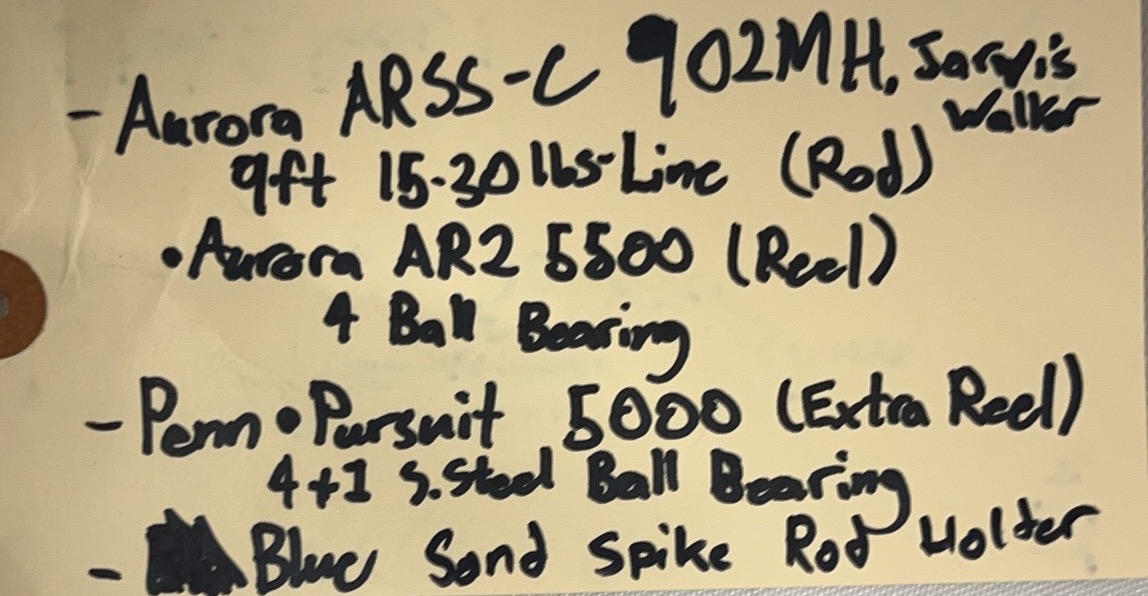 - Aurora ARSS-C 902MH, Jarvis
Walker
9ft 15-30 lbs-Line (Rod)
• Aurora AR2 5500 (Reel)
4 Ball Bearing
- Penn • Pursuit 5000 (Extra Reel)
4+1 S.Steel Ball Bearing
- Blue Sand Spike Rod Holter